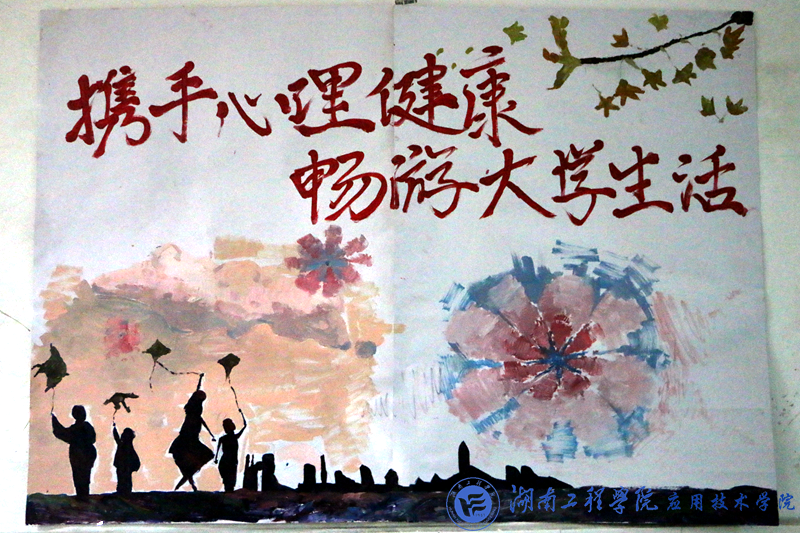 携手心理健康
畅游大学生活
湖南工程学院 应用技术学院